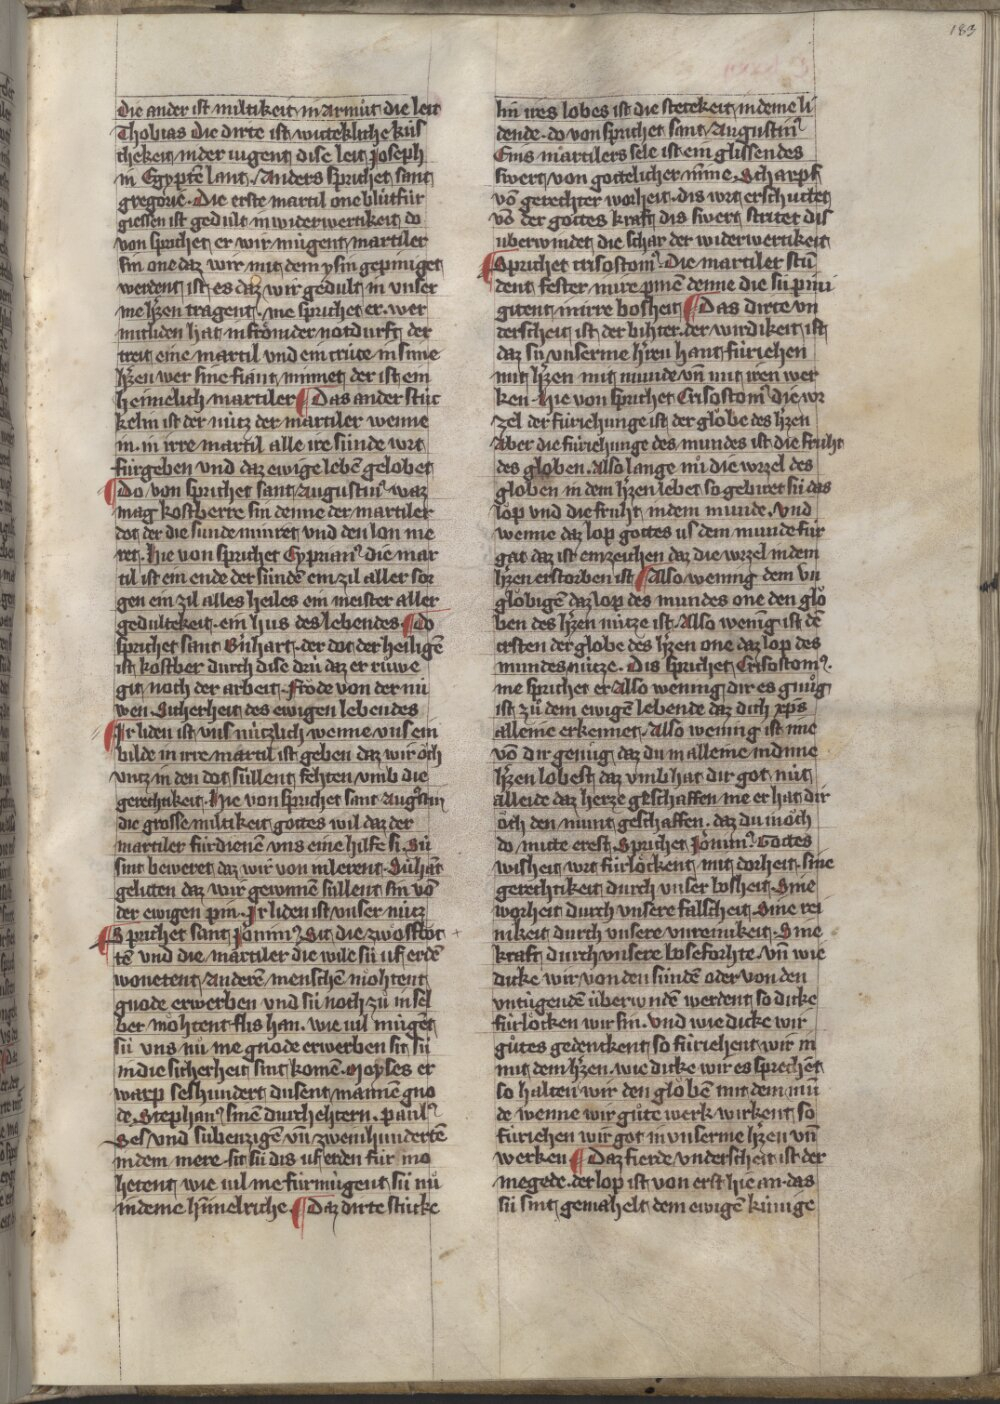 183
Die ander ist miltikeit in armuͦt die leit
Thobias Die dirte ist wittekliche kús
cheheit in der iugent dise leit Joseph
in Egyptē lant. Anders sprichet sant
gregorie. Die erste martil one blůtfúr
giessen ist gedult in widerwertikeit do
von sprichet er wir múgent martiler
sin one daz wir mit dem ysin gepiniget
werdent ist es daz wir gedult in unser
me h'zen tragent. me sprichet er. wer
mitliden hat in frömder notdurft der
treit eine martil und ein crúce in sime
h'zen wer sine fiant minnet der ist ein
heimelich martiler ¶ Das ander stúc
kelin ist der nutz der martiler wenne
in in irre martil alle ire súnde wrt
fúrgeben und daz ewige lebē gelobet
¶ Do von sprichet sant Augustin' waz
mag kostberre sin denne der martiler
dot der die sunde minret und den lon me
ret. hie von sprichet Cyprian' die mar
til ist ein ende der súndē ein zil aller sor
gen ein zil alles heiles ein meister aller
gedultekeit. ein hus des lebendes ¶ Do
sprichet sant B'nhart. der dot der heiligē
ist kostber durch dise drú daz er růwe
git noch der arbeit. fröde von der nú
wen. Sicherheit des ewigen lebendes
¶ Ir liden ist uns nútzlich wenne uns ein
bilde in irre martil ist geben daz wir öch
untz in den dot súllent fehten umb die
gerehtikeit. hie von sprichet sant Augustin
die grosse miltikeit gottes wil daz der
martiler fúrdienē uns eine hilfe si. Sú
sint beweret daz wir von in lerent. Sú hāt
gelitten daz wir gewinnē súllent sin vō
der ewigen pin. Ir liden ist unser nútz
¶ Sprichet sant Jeronim' Sit die zwölfbot
tē und die martiler die wile sú uf erdē
wonetent anderē menschē möhtent
gnode erwerben und sú noch zů in sel
ber möhtent flis han. wie vil múgēt
sú uns nů me gnode erwerben sit sú
in die sicherheit sint komē. Moyses er
warp seshundert dusent mannē gno
de. Stephan' sinē durchehtern. paul'
Ses und súbenzigē vn̄ zweinhundertē
in dem mere. sit sú dis uf erden fúr mo
hetent wie vil me fúrmúgent sú nů
in deme himelriche ¶ Daz dirte stúcke
lin ires lobes ist die stetekeit in deme li
dende. do von sprichet sant Augustin'
Eins martilers sele ist ein glissendes
swert von gottelicher minne. Scharpf
vō gerechter worheit. dis wrt erschútlet
vō der gottes kraft dis swert stritet dis
uberwindet die schar der widerwertikeit
¶ Sprichet crisostom'. Die martiler stū
dent fester in ire pinē denne die sú pini
gitent in irre bosheit ¶ Das dirte un
derscheit ist der bihter. der wirdikeit ist
daz sú unserme h'ren hant fúriehen
mit h'zen mit munde vn̄ mit iren wer
ken. hie von sprichet Crisostom' die wr
zel der fúriehunge ist der glöbe des h'zen
Aber die fúriehunge des mundes ist die fruht
des globen. Also lange nů die wrzel des
globen in dem h'zen lebet so gebiret sú das
lop und die fruht in dem munde. und
wenne daz lop gottes us dem munde fúr
gat daz ist ein zeichen daz die wrzel in dem
h'zen erstorben ist ¶ Also wening dem un
globigē daz lop des mundes one den glö
ben des h'zen nútze ist. Also wenig ist dē
cristen der globe des h'zen one daz lop des
mundes nútze. Dis sprichet Crisostom'.
me sprichet er Also wening dir es gnůg
ist zů dem ewigen lebende daz dich xp̄s
alleine erkennet. Also wening ist me
vō dir genůg daz du in alleine in dime
h'zen lobest daz umb hat dir got nút
alleine daz herze geschaffen me er hat dir
öch den munt geschaffen. daz du in öch
do mitte erest. Sprichet Jeronim'. Gottes
wisheit wrt fúrlöckent mit dorheit. sine
gerechtikeit durch unser bosheit. Sine
worheit durch unsere falscheit. Sine rei
nikeit durch unsere unreinikeit. Sine
kraft durch unsere bloseforhte. vn̄ wie
dicke wir von den súndē oder von den
untúgendē úberwndē werdent so dicke
fúrlöcken wir sin. und wie dicke wir
gůtes gedenckent so fúriehent wir in
mit dem h'zen. wie dicke wir es sprechēt
so halten wir den glöbē mit dem mū
de wenne wir gůte werk wirkent so
fúriehen wir got in unserme h'zen vn̄
werken ¶ Daz fierde underscheit ist der
megede. der lop ist von erst hie an. das
sú sint gemahelt dem ewigē kúnige